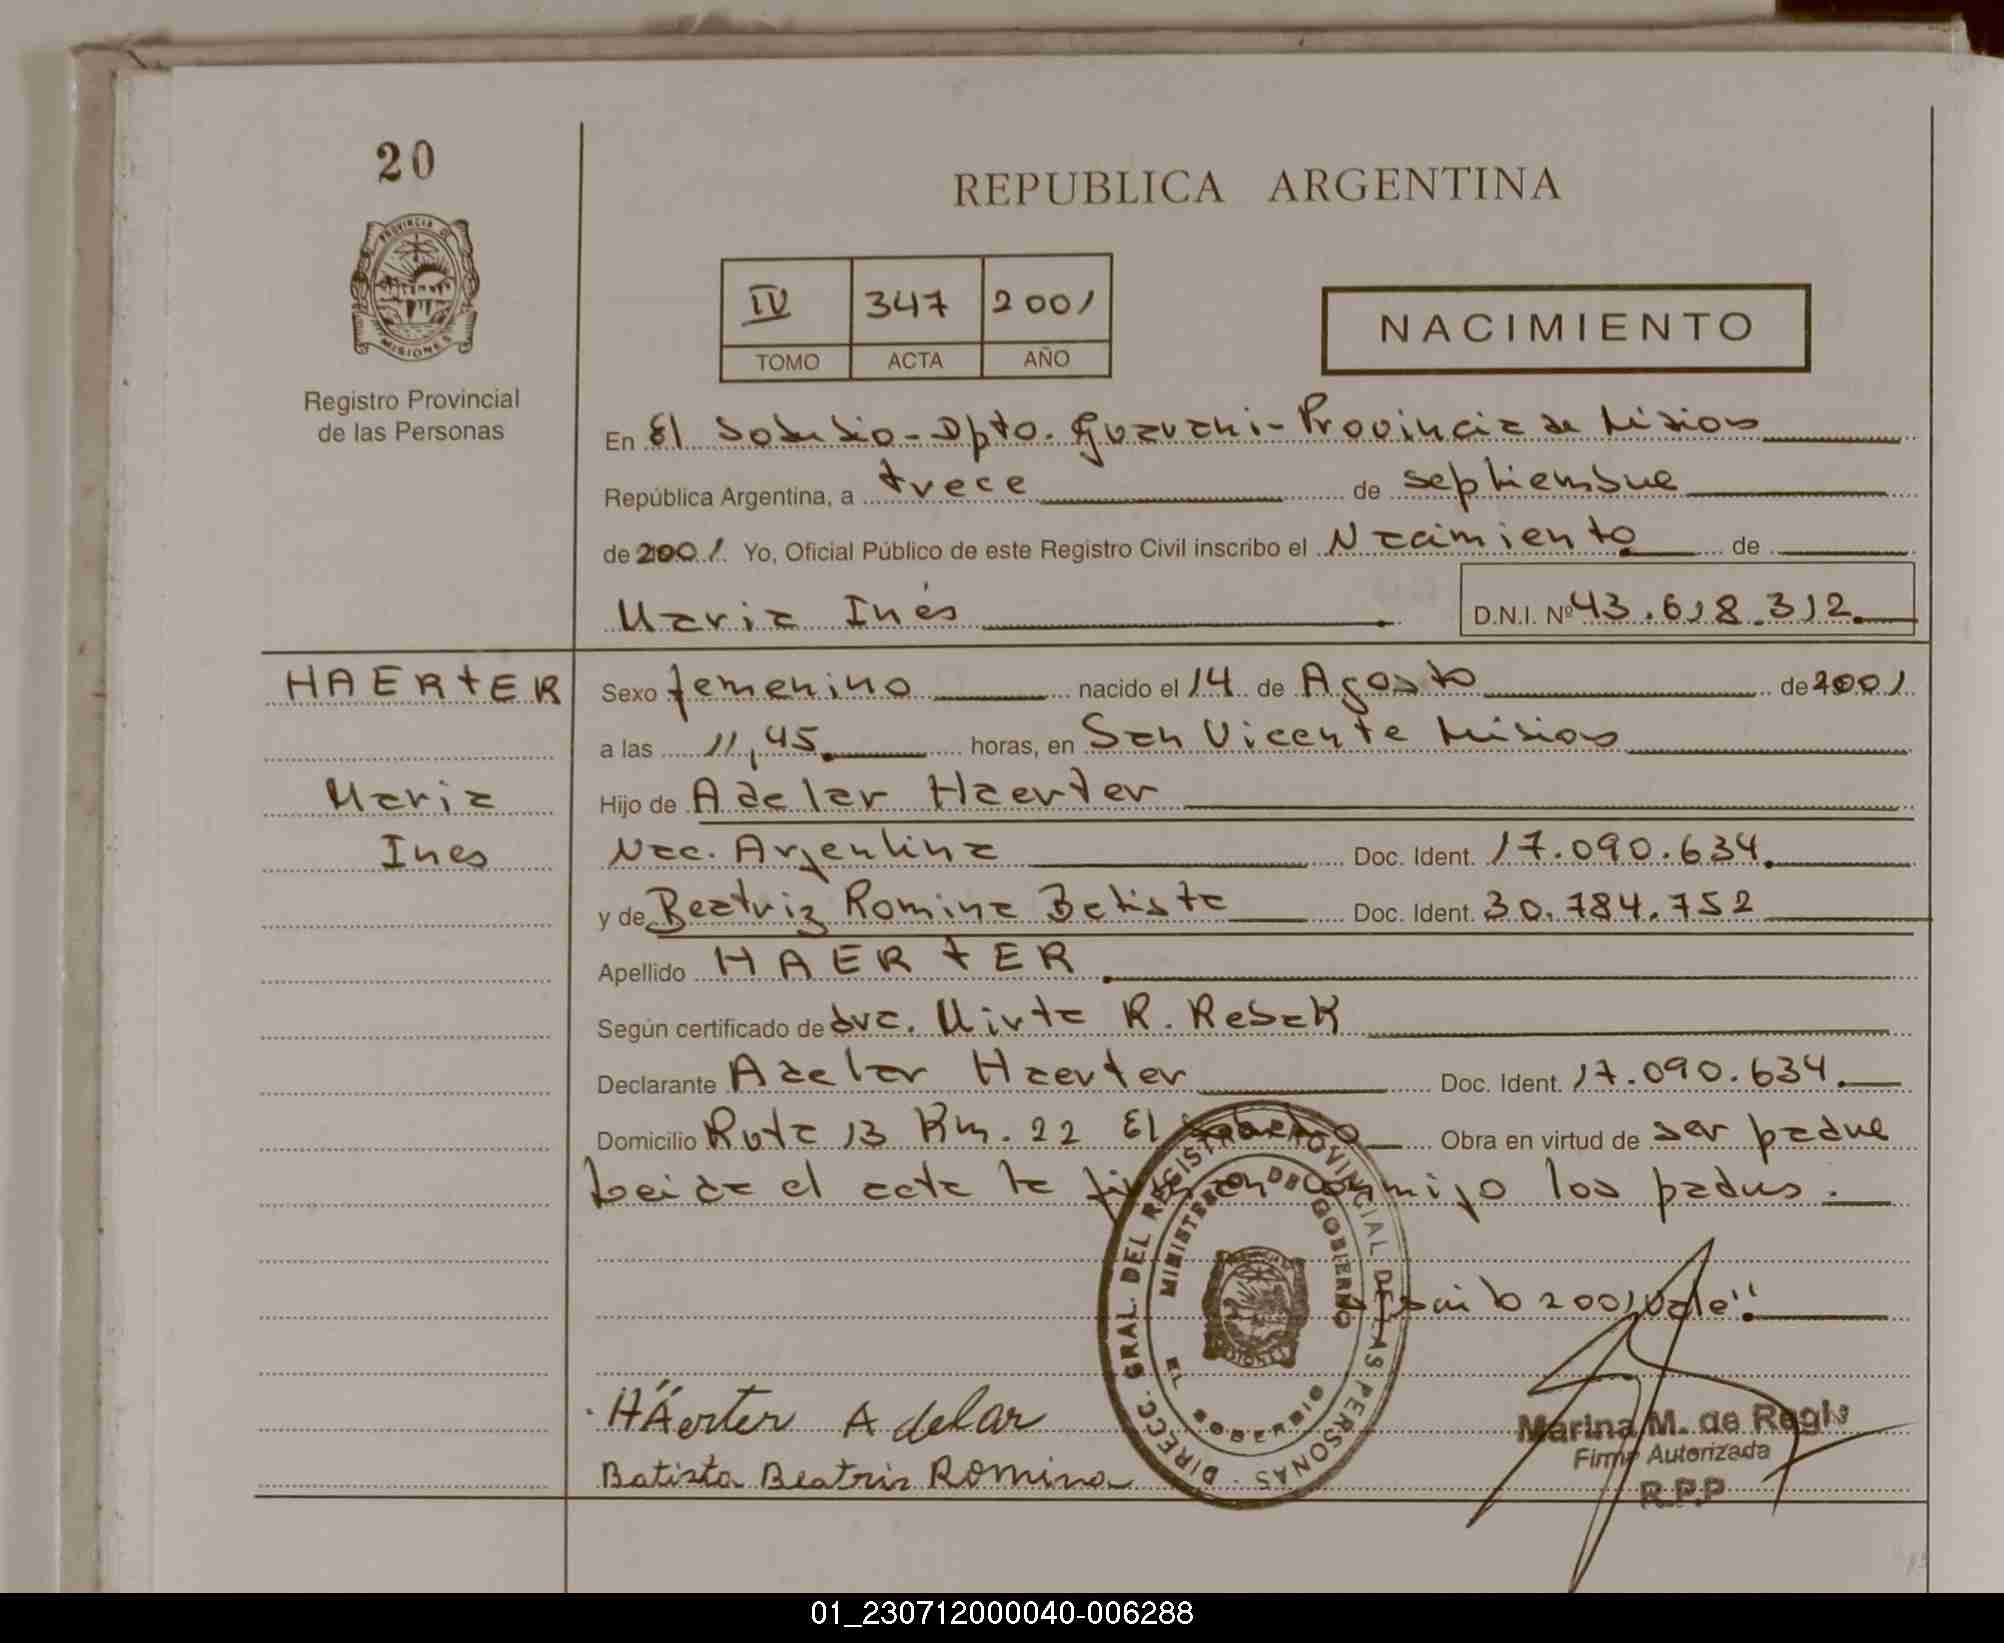 20
REPUBLICA ARGENTINA
PROVINCIA DE
MISIONES
IV 347 2001
TOMO ACTA AÑO
NACIMIENTO
Registro Provincial
de las Personas
En El Soberbio - Dpto. Guarani - Provincia de Misiones
República Argentina, a trece de septiembre
de 2001 Yo, Oficial Público de este Registro Civil inscribo el Nacimiento de
Maria Inés D.N.I. Nº 43.618.312
HAERTER Sexo femenino nacido el 14 de Agosto de 2001
a las 11,45 horas, en San Vicente Misiones
Maria Hijo de Adelar Haerter
Ines Nac. Argentina Doc. Ident. 17.090.634
y de Beatriz Romina Batista Doc. Ident. 30.784.752
Apellido HAERTER
Según certificado de dra. Mirta R. Rebak
Declarante Adelar Haerter Doc. Ident. 17.090.634
Domicilio Ruta 13 Km. 22 El Soberbio Obra en virtud de ser padre
Leida el acta la firman conmigo los padres.
2001 Vale"
DIRECC. GRAL. DEL REGISTRO PROVINCIAL DE LAS PERSONAS -
MINISTERIO DE GOBIERNO
EL SOBERBIO
HÄerter Adelar
Batista Beatriz Romina
Marina M. de Regis
Firma Autorizada
R.P.P
01_230712000040-006288